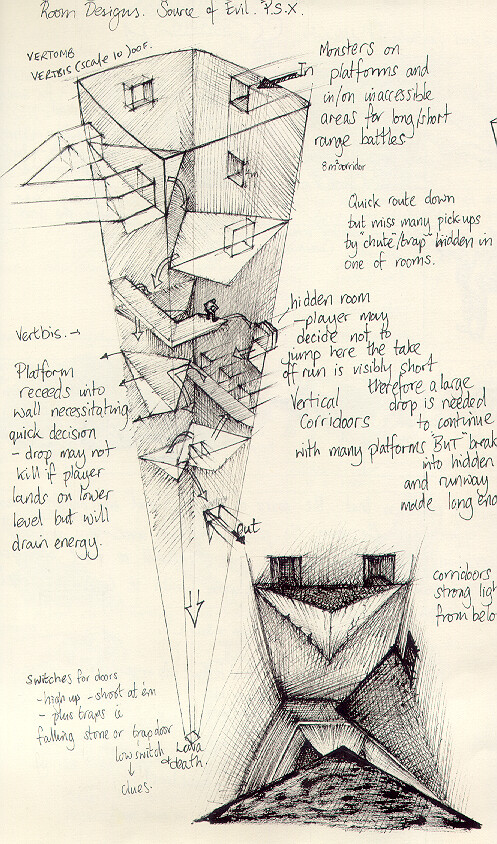 Room Designs. Source of Evil. P.S.X.
VERTOMB
VERTBIS (scale 10) OOF.
Monsters on
In platforms and
in/on inaccessible
areas for long/short
range battles
8m² corridor
Quick route down
but miss many pickups
by "chute"/trap hidden in
one of rooms.
hidden room
- player may
decide not to
jump here the take
off run is visibly short
therefore a large
drop is needed
to continue
Vertical
Corridoors
with many platforms BUT "break
into hidden
and runway
made long eno
Vertbis. →
Platform
receeds into
wall necessitating
quick decision
- drop may not
kill if player
lands on lower
level but will
drain energy.
out
corridoors
strong ligh
from belo
switches for doors
- high up - shoot at em
- plus traps is
falling stone or trapdoor
low switch
↓
clues.
Lava
death.